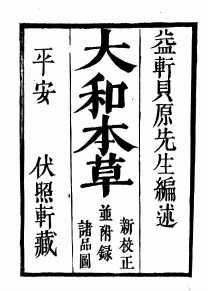 益軒貝原先生編述
大和本草
新校正
並附録
諸品圖
平安 伏照軒藏